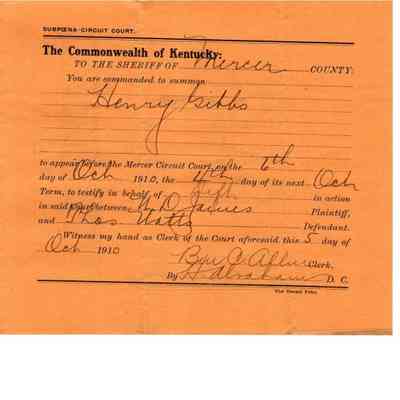 SUBPŒNA-CIRCUIT COURT.
The Commonwealth of Kentucky:
TO THE SHERIFF OF Mercer COUNTY:
You are commanded to summon
Henry Gibbs
to appear before the Mercer Circuit Court, on the 6th
day of Oct 1910, the 4th day of its next Oct
Term, to testify in behalf of Deft in action
in said Court between W. D. James Plaintiff,
and Thos Watts Defendant.
Witness my hand as Clerk of the Court aforesaid, this 5 day of
Oct 1910
Ben C Allin Clerk,
By Abraham D. C.